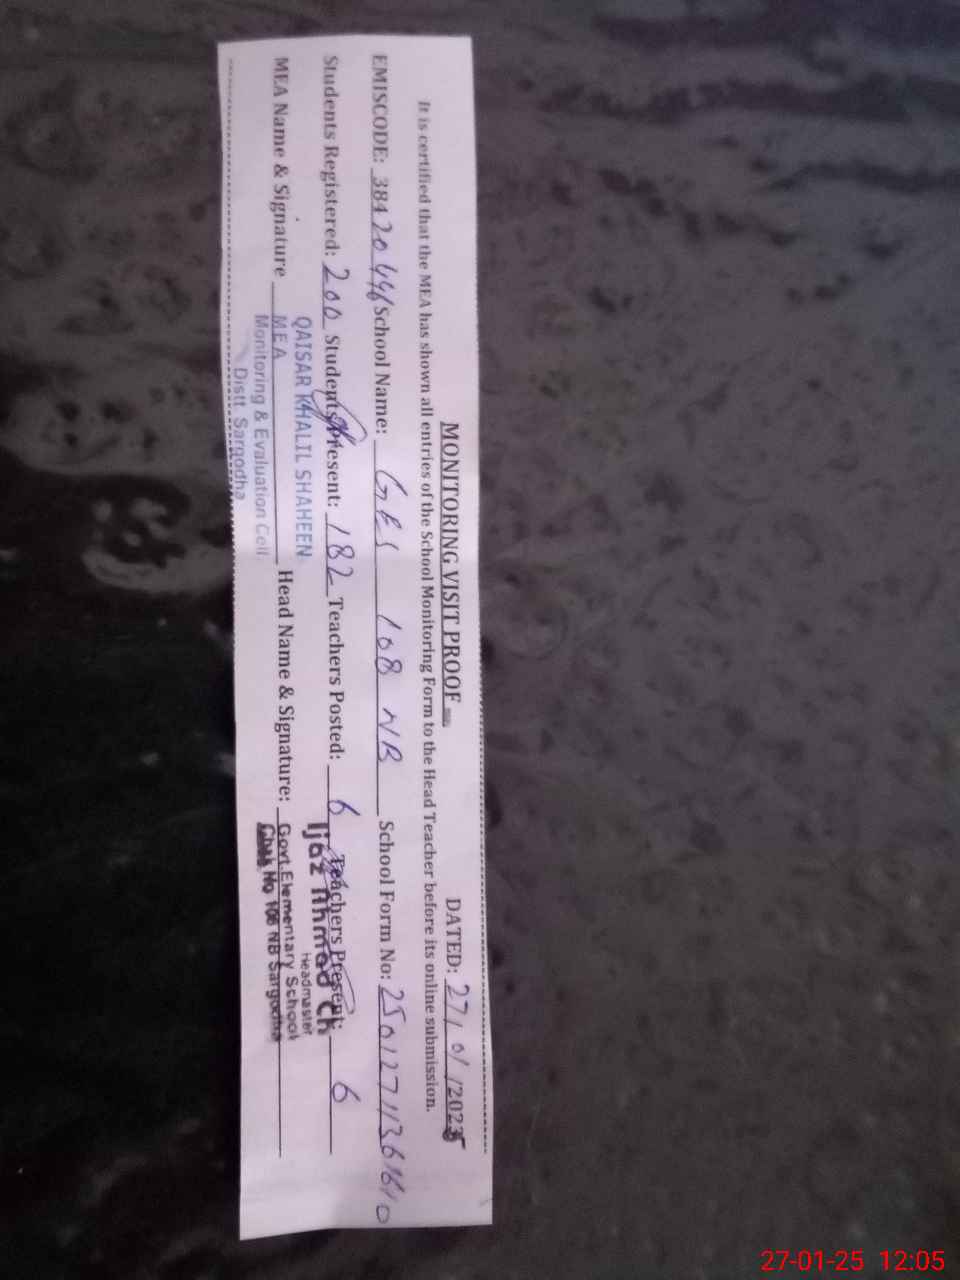 MONITORING VISIT PROOF DATED: 27/01/2025
It is certified that the MEA has shown all entries of the School Monitoring Form to the Head Teacher before its online submission.
EMISCODE: 38420446 School Name: GES 108 NB School Form No:
Students Registered: 200 Students Present: 182 Teachers Posted: 6 Teachers Present: 6
QAISAR KHALIL SHAHEEN
Ijaz Ahmad Ch
Headmaster
MEA Name & Signature MEA Head Name & Signature: Govt. Elementary School
Monitoring & Evaluation Cell
Chak No 108 NB Sargodha
Distt. Sargodha
27-01-25 12:05